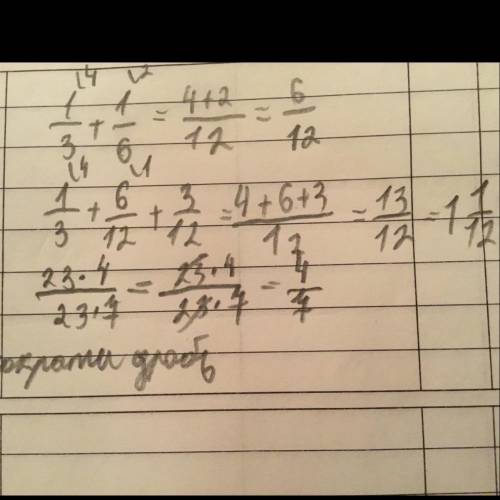 1/3 + 1/6 = (4+2)/12 = 6/12
1/3 + 6/12 + 3/12 = (4+6+3)/12 = 13/12 = 1 1/12
(23·4)/(23·7) = (23·4)/(23·7) = 4/7
сократи дробь